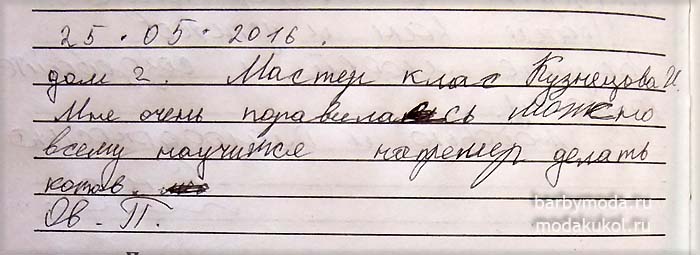 25.05.2016.
дом 2. Мастер клас Кузнецова И.
Мне очень поравилась можно
всему научижся напремер делать
котов.
Ов. П.
barbymoda.ru
modakukol.ru